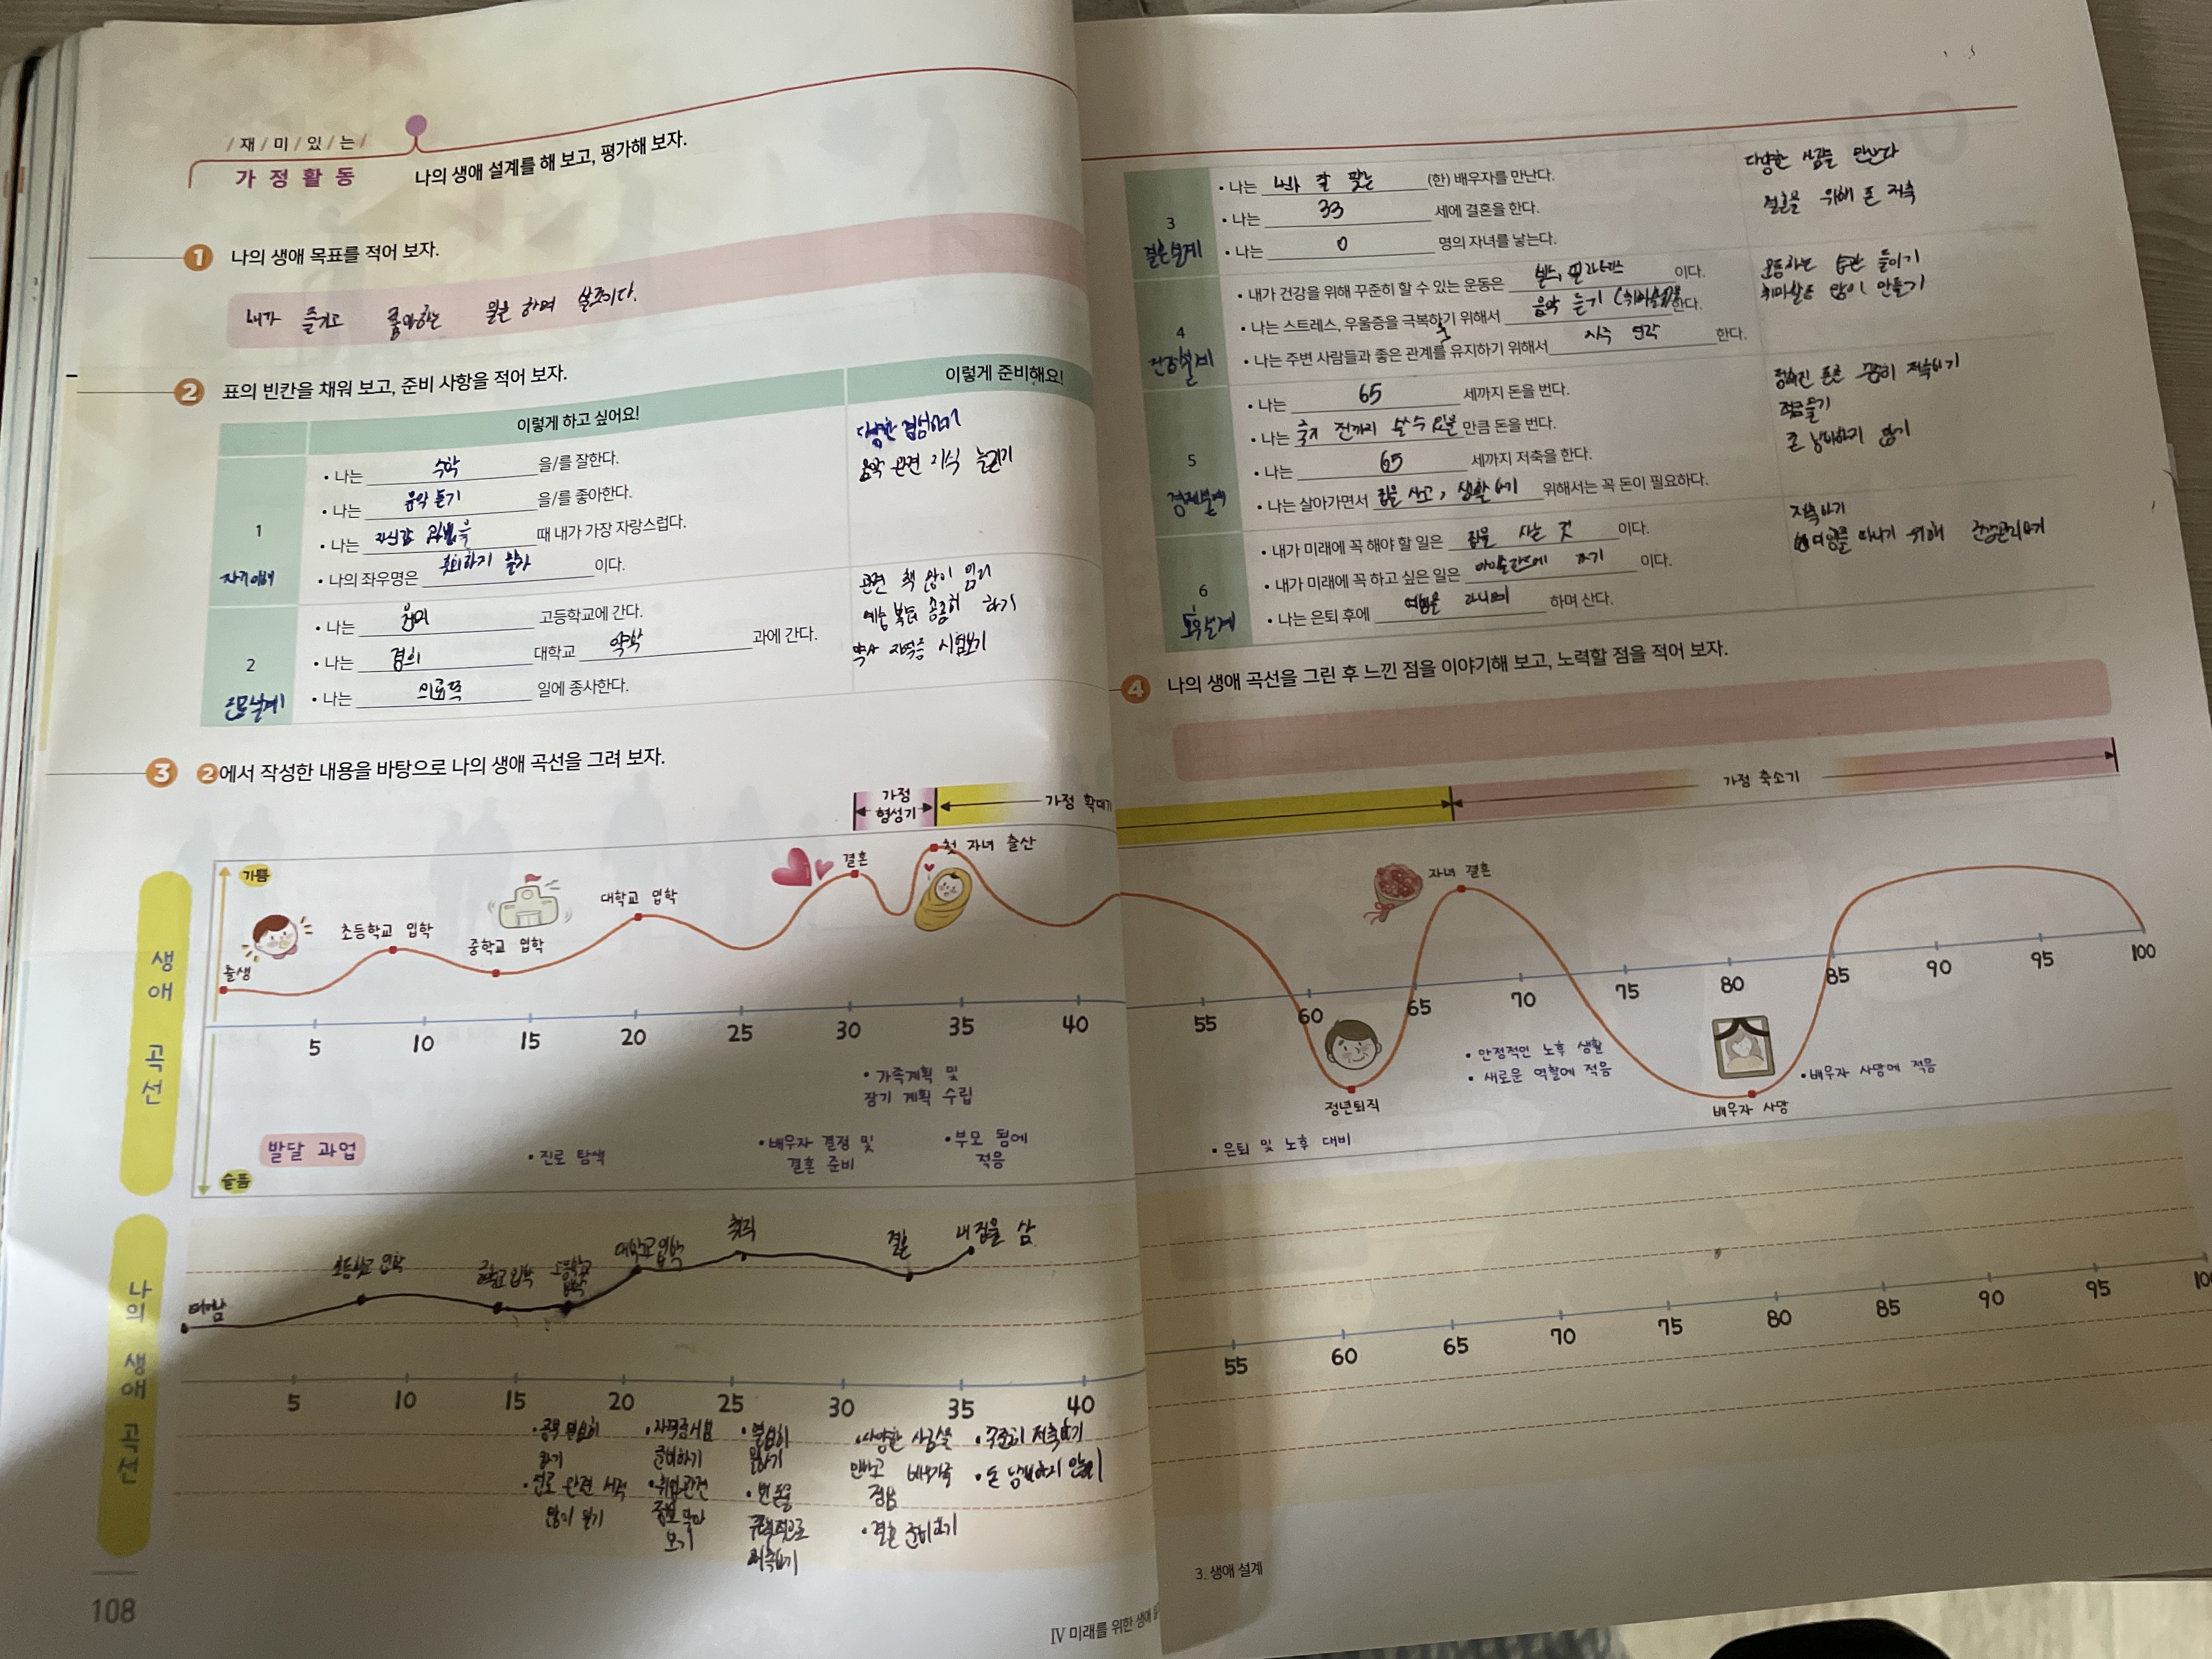 / 재 / 미 / 있 / 는 /
가 정 활 동
나의 생애 설계를 해 보고, 평가해 보자.
1 나의 생애 목표를 적어 보자.
내가 즐기고 좋아하는 일을 하며 살 것이다.
2 표의 빈칸을 채워 보고, 준비 사항을 적어 보자.
이렇게 하고 싶어요!
이렇게 준비해요!
1
자기이해
• 나는 수학 을/를 잘한다.
• 나는 음악 듣기 을/를 좋아한다.
• 나는 자신감 있었을 때 내가 가장 자랑스럽다.
• 나의 좌우명은 후회하지 말자 이다.
다양한 경험하기
음악 관련 지식 늘리기
2
진로설계
• 나는 고등학교에 간다.
• 나는 경희 대학교 약학 과에 간다.
• 나는 의료직 일에 종사한다.
관련 책 많이 읽기
예습 복습 꼼꼼히 하기
약사 자격증 시험보기
3 2에서 작성한 내용을 바탕으로 나의 생애 곡선을 그려 보자.
가정 형성기
가정 확대기
생애 곡선
기쁨
출생
초등학교 입학
중학교 입학
대학교 입학
결혼
첫 자녀 출산
5 10 15 20 25 30 35 40
• 가족계획 및
장기 계획 수립
발달 과업
• 진로 탐색
• 배우자 결정 및
결혼 준비
• 부모 됨에
적응
슬픔
나의 생애 곡선
태어남
초등학교 입학
중학교 입학
고등학교
입학
대학교 입학
취직
결혼
내 집을 삼
5 10 15 20 25 30 35 40
• 공부 열심히
하기
• 진로 관련 서적
많이 읽기
• 자격증시험
준비하기
• 취업 관련
정보 찾아
보기
• 열심히
일하기
• 번 돈을
규칙적으로
저축하기
• 다양한 사람을
만나고 배우자를
정함
• 결혼 준비하기
• 꾸준히 저축하기
• 돈 낭비하지 않기
108
IV 미래를 위한 생애
3
결혼설계
• 나는 나와 잘 맞는 (한) 배우자를 만난다.
• 나는 33 세에 결혼을 한다.
• 나는 0 명의 자녀를 낳는다.
다양한 사람을 만난다
결혼을 위해 돈 저축
4
건강설계
• 내가 건강을 위해 꾸준히 할 수 있는 운동은 헬스, 필라테스 이다.
• 나는 스트레스, 우울증을 극복하기 위해서 음악 듣기 (취미생활)를 한다.
• 나는 주변 사람들과 좋은 관계를 유지하기 위해서 자주 연락 한다.
운동하는 습관 들이기
취미활동 많이 만들기
5
경제설계
• 나는 65 세까지 돈을 번다.
• 나는 죽기 전까지 쓸 수 있을 만큼 돈을 번다.
• 나는 65 세까지 저축을 한다.
• 나는 살아가면서 집을 사고, 생활하기 위해서는 꼭 돈이 필요하다.
정해진 돈은 꾸준히 저축하기
적금들기
돈 낭비하지 않기
6
노후설계
• 내가 미래에 꼭 해야 할 일은 집을 사는 것 이다.
• 내가 미래에 꼭 하고 싶은 일은 아일랜드에 가기 이다.
• 나는 은퇴 후에 여행을 다니며 하며 산다.
저축하기
여행을 다니기 위해 건강관리하기
4 나의 생애 곡선을 그린 후 느낀 점을 이야기해 보고, 노력할 점을 적어 보자.
가정 축소기
자녀 결혼
55 60 65 70 75 80 85 90 95 100
• 안정적인 노후 생활
• 새로운 역할에 적응
정년퇴직
배우자 사망
• 배우자 사망에 적응
• 은퇴 및 노후 대비
55 60 65 70 75 80 85 90 95 10
3. 생애 설계